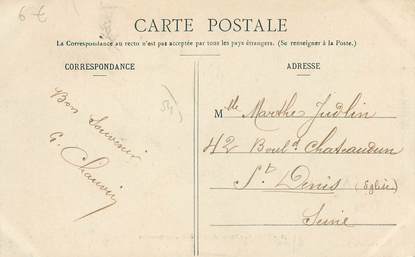 6 €
CARTE POSTALE
La Correspondance au recto n'est pas acceptée par tous les pays étrangers. (Se renseigner à la Poste.)
CORRESPONDANCE
Bon Souvenir
G. Chauvin
ADRESSE
Mlle Marthe Judlin
42 Boul.d Chateaudun
St. Denis (Eglise)
Seine